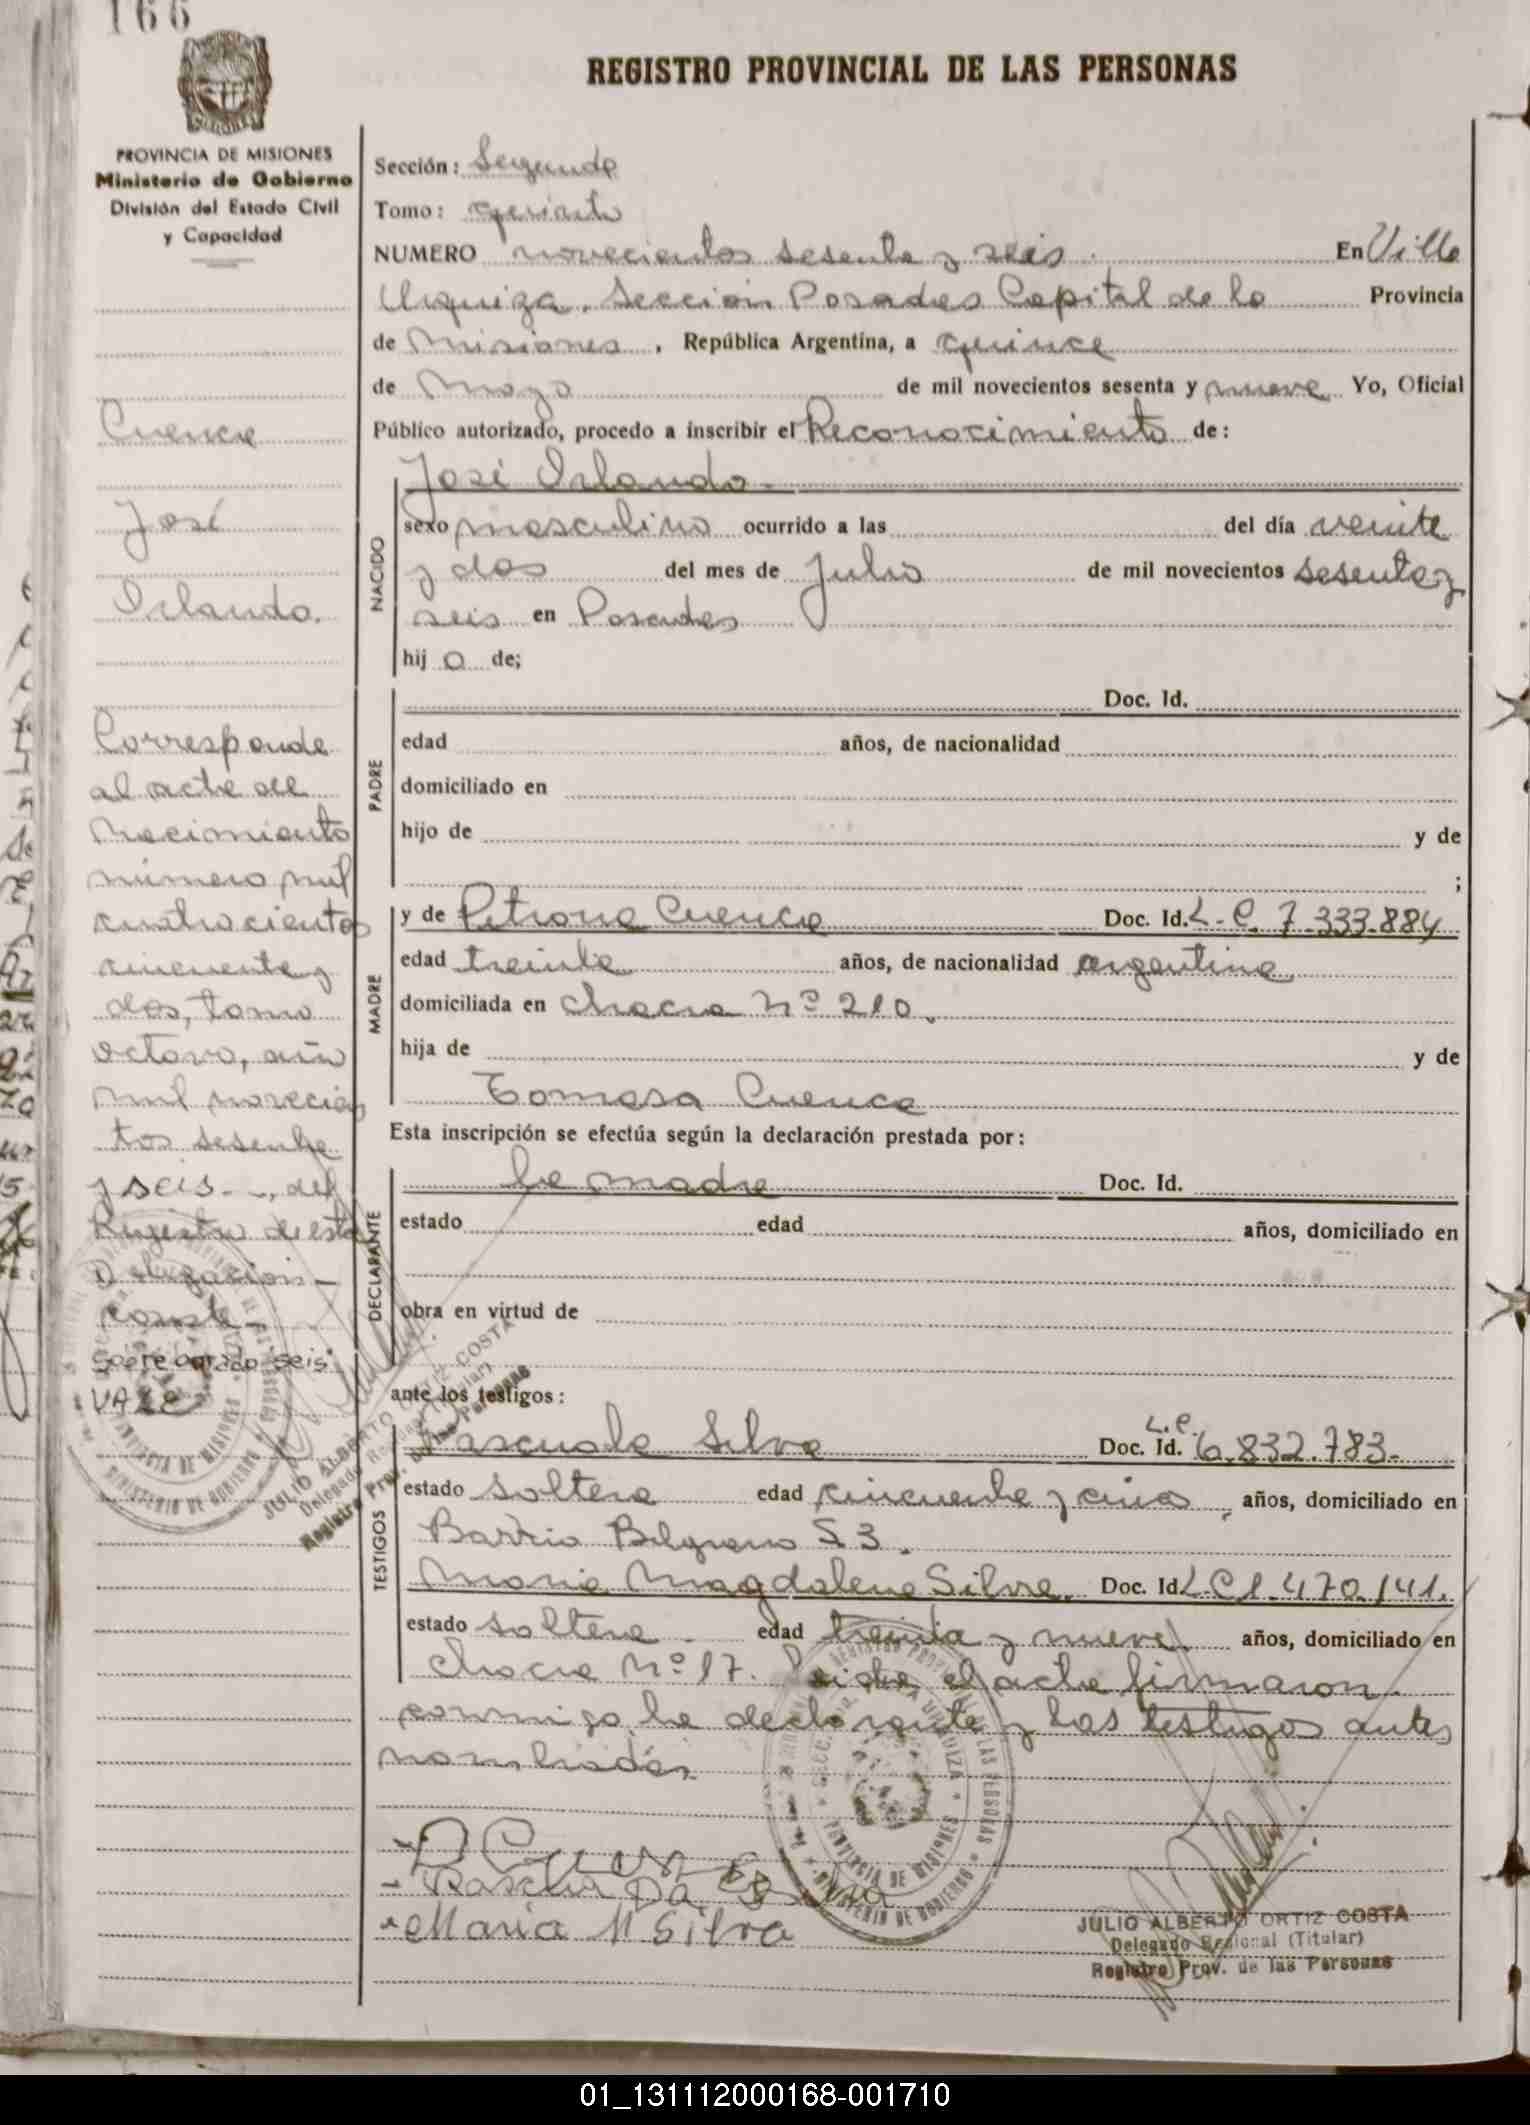 166
REGISTRO PROVINCIAL DE LAS PERSONAS
PROVINCIA DE MISIONES
Ministerio de Gobierno
División del Estado Civil
y Capacidad
Cuenca
José
Orlando.
Corresponde
al acta de
Nacimiento
número mil
cuatrocientos
cincuenta y
dos, tomo
octavo, año
mil novecien
tos sesenta
y seis-., del
Registro de esta
Delegación-
Conste-
Sobre borrado "seis"
VALE
Sección: Segunda
Tomo: quinto
NUMERO novecientos sesenta y seis En Villa
Urquiza. Sección Posadas Capital de la Provincia
de Misiones, República Argentina, a quince
de Mayo de mil novecientos sesenta y nueve Yo, Oficial
Público autorizado, procedo a inscribir el Reconocimiento de:
NACIDO
José Orlando.-
sexo masculino ocurrido a las del día veinte
y dos del mes de Julio de mil novecientos sesenta y
seis en Posadas
hij o de;
PADRE
Doc. Id.
edad años, de nacionalidad
domiciliado en
hijo de y de
;
MADRE
y de Petrona Cuenca Doc. Id. L.C. 7.333.884
edad treinta años, de nacionalidad argentina
domiciliada en chacra Nº 210.
hija de y de
Tomasa Cuenca
Esta inscripción se efectúa según la declaración prestada por:
DECLARANTE
la madre Doc. Id.
estado edad años, domiciliado en
obra en virtud de
ante los testigos:
TESTIGOS
Pascuala Silva Doc. Id. L.C. 6.832.783.-
estado soltera edad cincuenta y cinco, años, domiciliado en
Barrio Belgrano 53.
Maria Magdalena Silva. Doc. Id L.C 1.470.141.
estado soltera. edad treinta y nueve años, domiciliado en
chacra Nº 17. Leida el acta firmaron
conmigo la declarante y los testigos antes
nombrados.
Maria M Silva
JULIO ALBERTO ORTIZ COSTA
Delegado Regional (Titular)
Registro Prov. de las Personas
JULIO ALBERTO ORTIZ COSTA
Delegado Regional (Titular)
Registro Prov. de las Personas
PROVINCIA DE MISIONES
MINISTERIO DE GOBIERNO
01_131112000168-001710